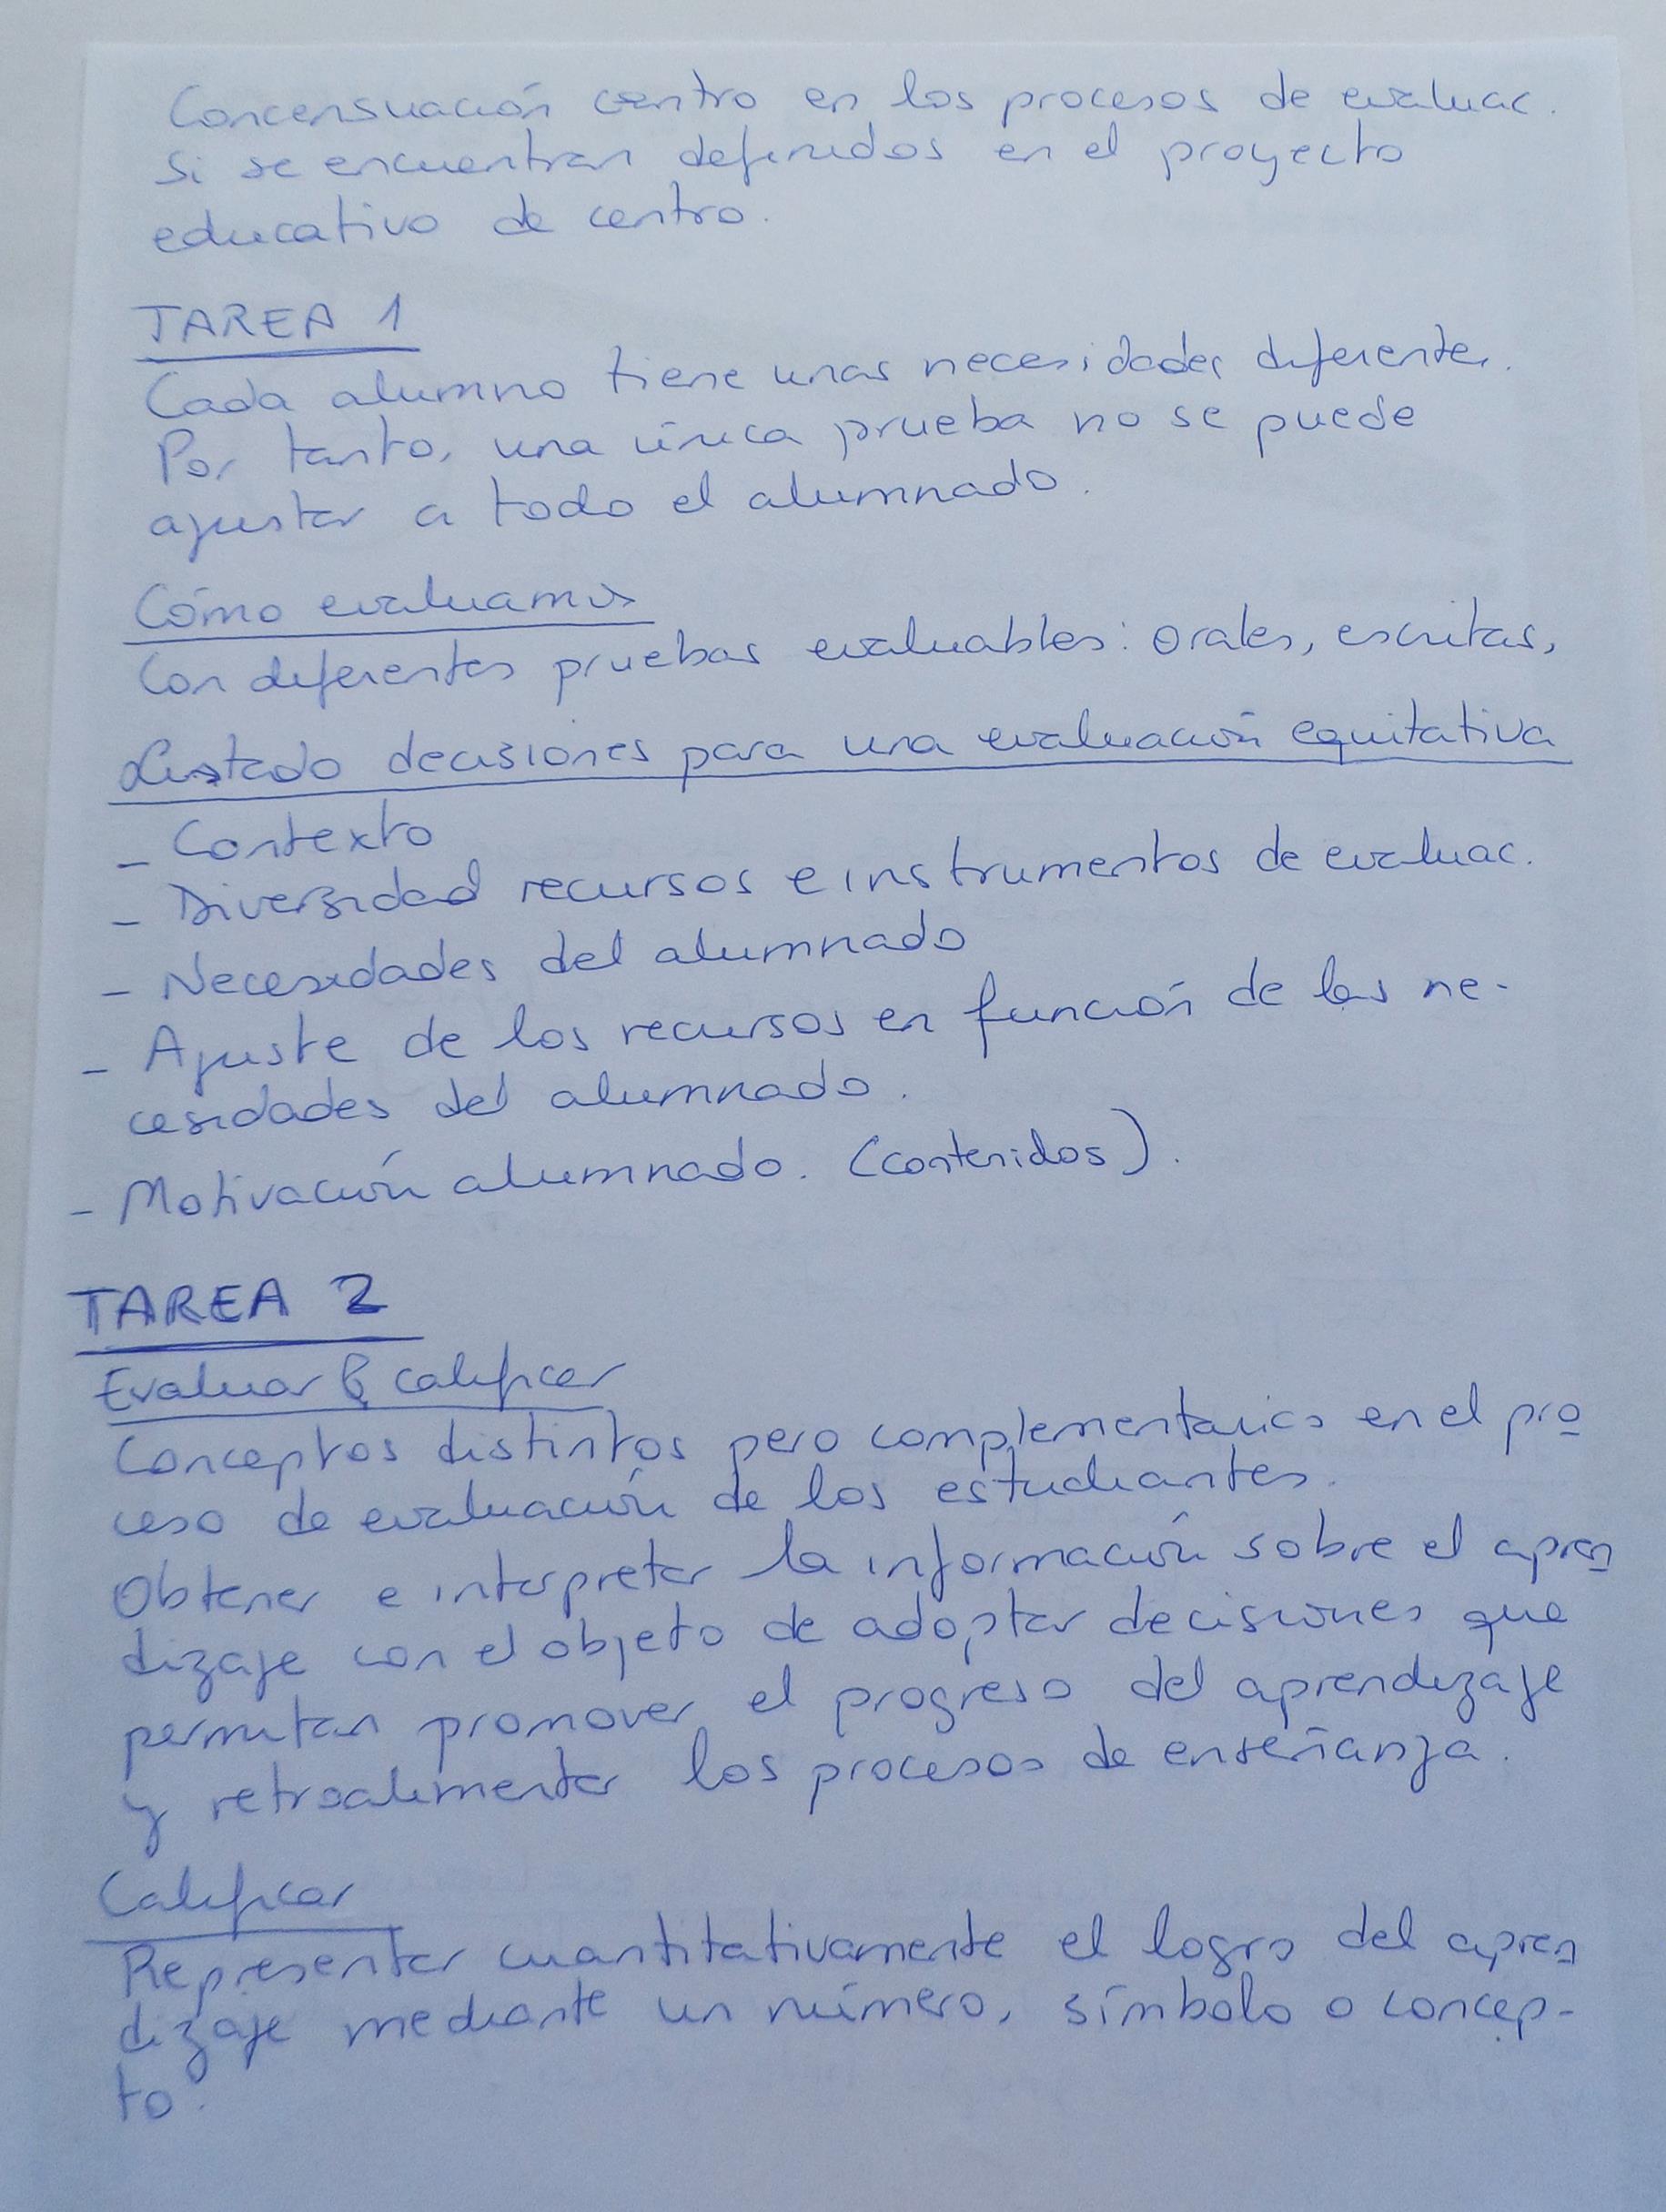 Concensuación centro en los procesos de evaluac.
Si se encuentran definidos en el proyecto
educativo de centro.
TAREA 1
Cada alumno tiene unas necesidades diferentes.
Por tanto, una única prueba no se puede
ajustar a todo el alumnado.
Cómo evaluamos
Con diferentes pruebas evaluables: orales, escritas,
Listado decisiones para una evaluación equitativa
- Contexto
- Diversidad recursos e instrumentos de evaluac.
- Necesidades del alumnado
- Ajuste de los recursos en función de las ne-
cesidades del alumnado.
- Motivación alumnado. (contenidos).
TAREA 2
Evaluar & calificar
Conceptos distintos pero complementarios en el pro
ceso de evaluación de los estudiantes.
Obtener e interpretar la información sobre el apren
dizaje con el objeto de adoptar decisiones que
permitan promover el progreso del aprendizaje
y retroalimentar los procesos de enseñanza.
Calificar
Representar cuantitativamente el logro del apren
dizaje mediante un número, símbolo o concep-
to.